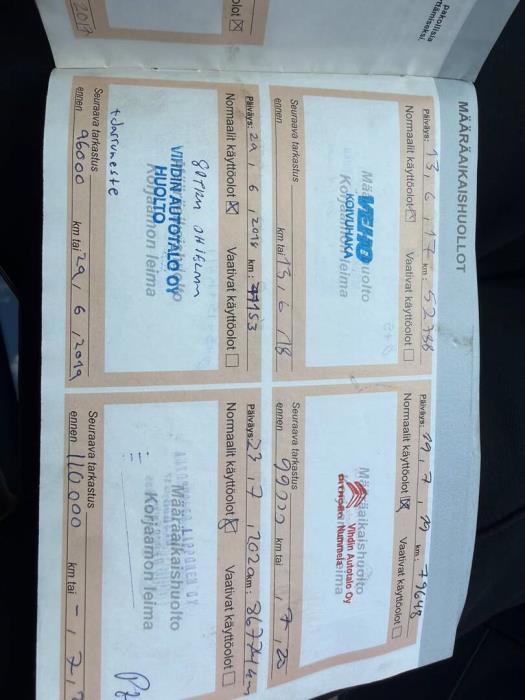 MÄÄRÄAIKAISHUOLLOT
Päiväys: 13, 6, 17 km: 52798
Normaalit käyttöolot ☒ Vaativat käyttöolot ☐
Määräaikaishuolto
VEHO
KOIVUHAKA
Korjaamon leima
Seuraava tarkastus
ennen km tai 13, 6, 18
Päiväys: 29, 6, 2018 km: 71153
Normaalit käyttöolot ☒ Vaativat käyttöolot ☐
VIHDIN AUTOTALO OY
HUOLTO
Korjaamon leima
+ Jarruneste
Seuraava tarkastus
ennen 96000 km tai 29, 6, 2019
Päiväys: 19, 7, 19 km: 79648
Normaalit käyttöolot ☒ Vaativat käyttöolot ☐
Määräaikaishuolto
Vihdin Autotalo Oy
CITROËN Nummela
Seuraava tarkastus
ennen km tai , 7, 20
Päiväys: 23, 7, 2020 km: 867714
Normaalit käyttöolot ☒ Vaativat käyttöolot ☐
Määräaikaishuolto
Korjaamon leima
Seuraava tarkastus
ennen 110000 km tai -, 7,